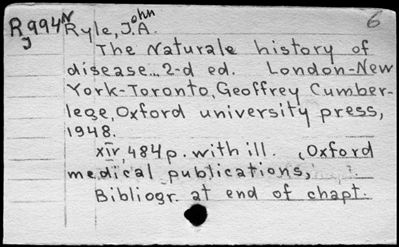 6
R994N Ryle, J.A. ohn
J
The Naturale history of
disease... 2-d ed. London-New
York-Toronto, Geoffrey Cumber-
lege, Oxford university press,
1948.
xiv, 484 p. with ill. (Oxford
medical publications,
Bibliogr. at end of chapt.